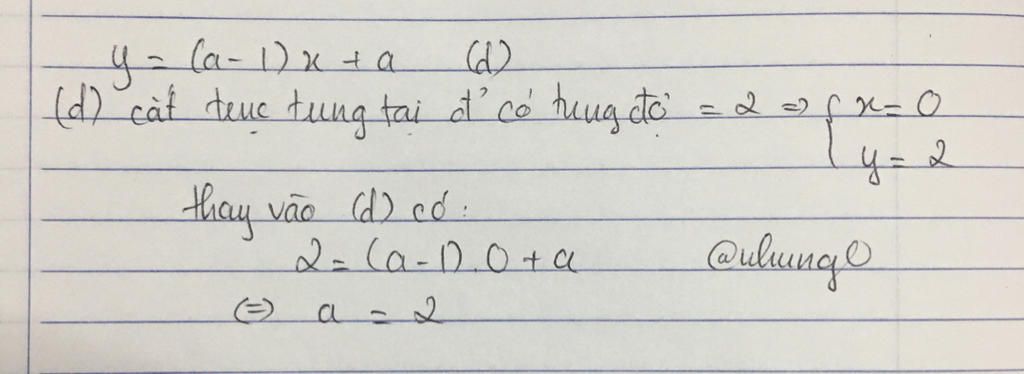 y = (a-1)x + a (d)
(d) cắt trục tung tại đ' có tung độ = 2 => { x = 0
y = 2
thay vào (d) có:
2 = (a-1).0 + a
<=> a = 2